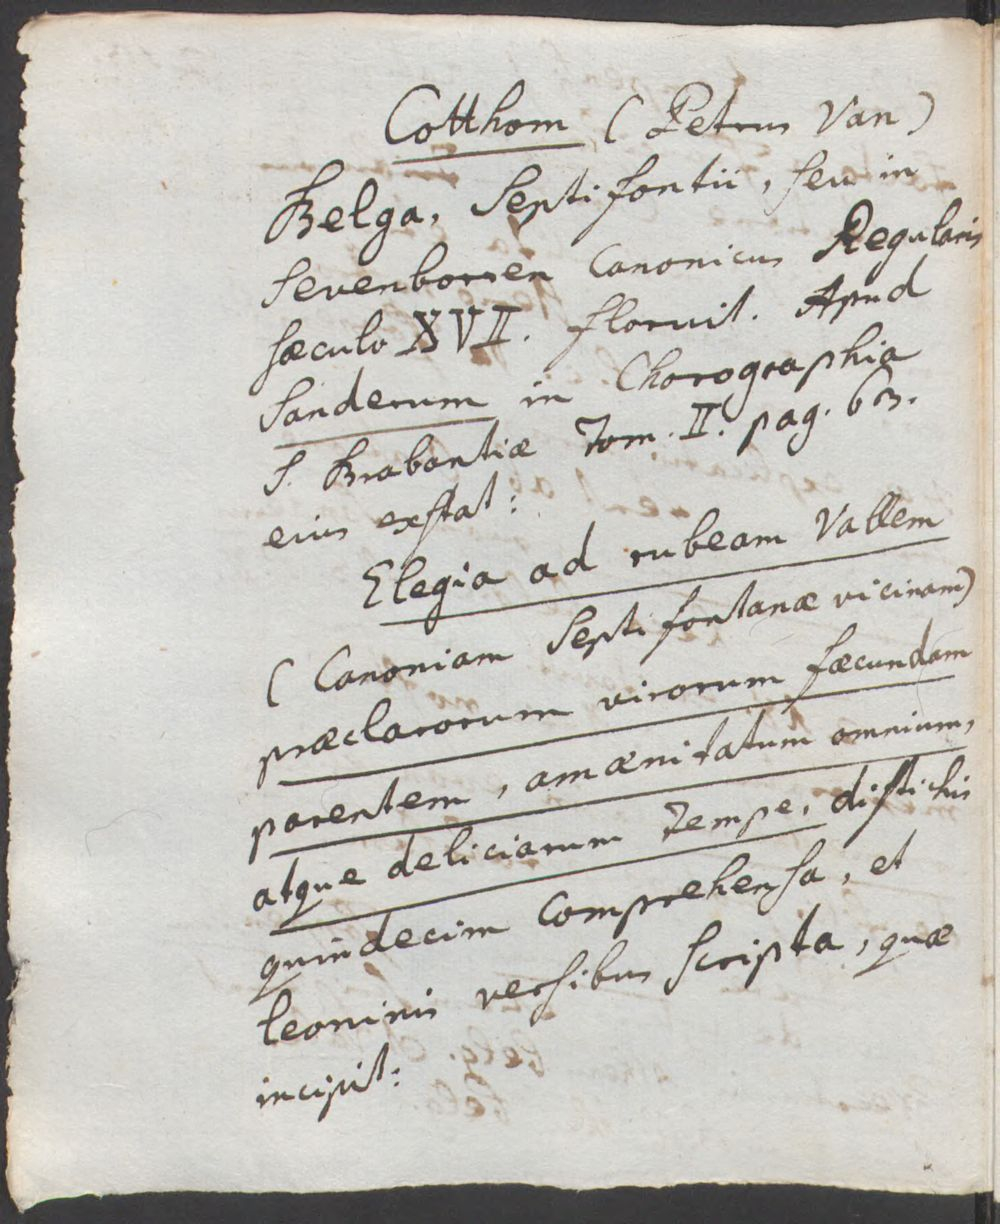 Cotthom (Petrus Van)
Belga, Septifontii, seu in
Sevenborren Canonicus Regularis
sæculo XVII. floruit. Apud
Sanderum in Chorographia
S. Brabantiæ Tom. II. pag. 63.
eius exstat:
Elegia ad rubeam Vallem
(Canoniam Septifontanæ vicinam)
præclarorum virorum fæcundam
parentem, amænitatum omnium,
atque deliciarum Tempe, distichis
quindecim comprehensa, et
leoninis versibus scripta, quæ
incipit: